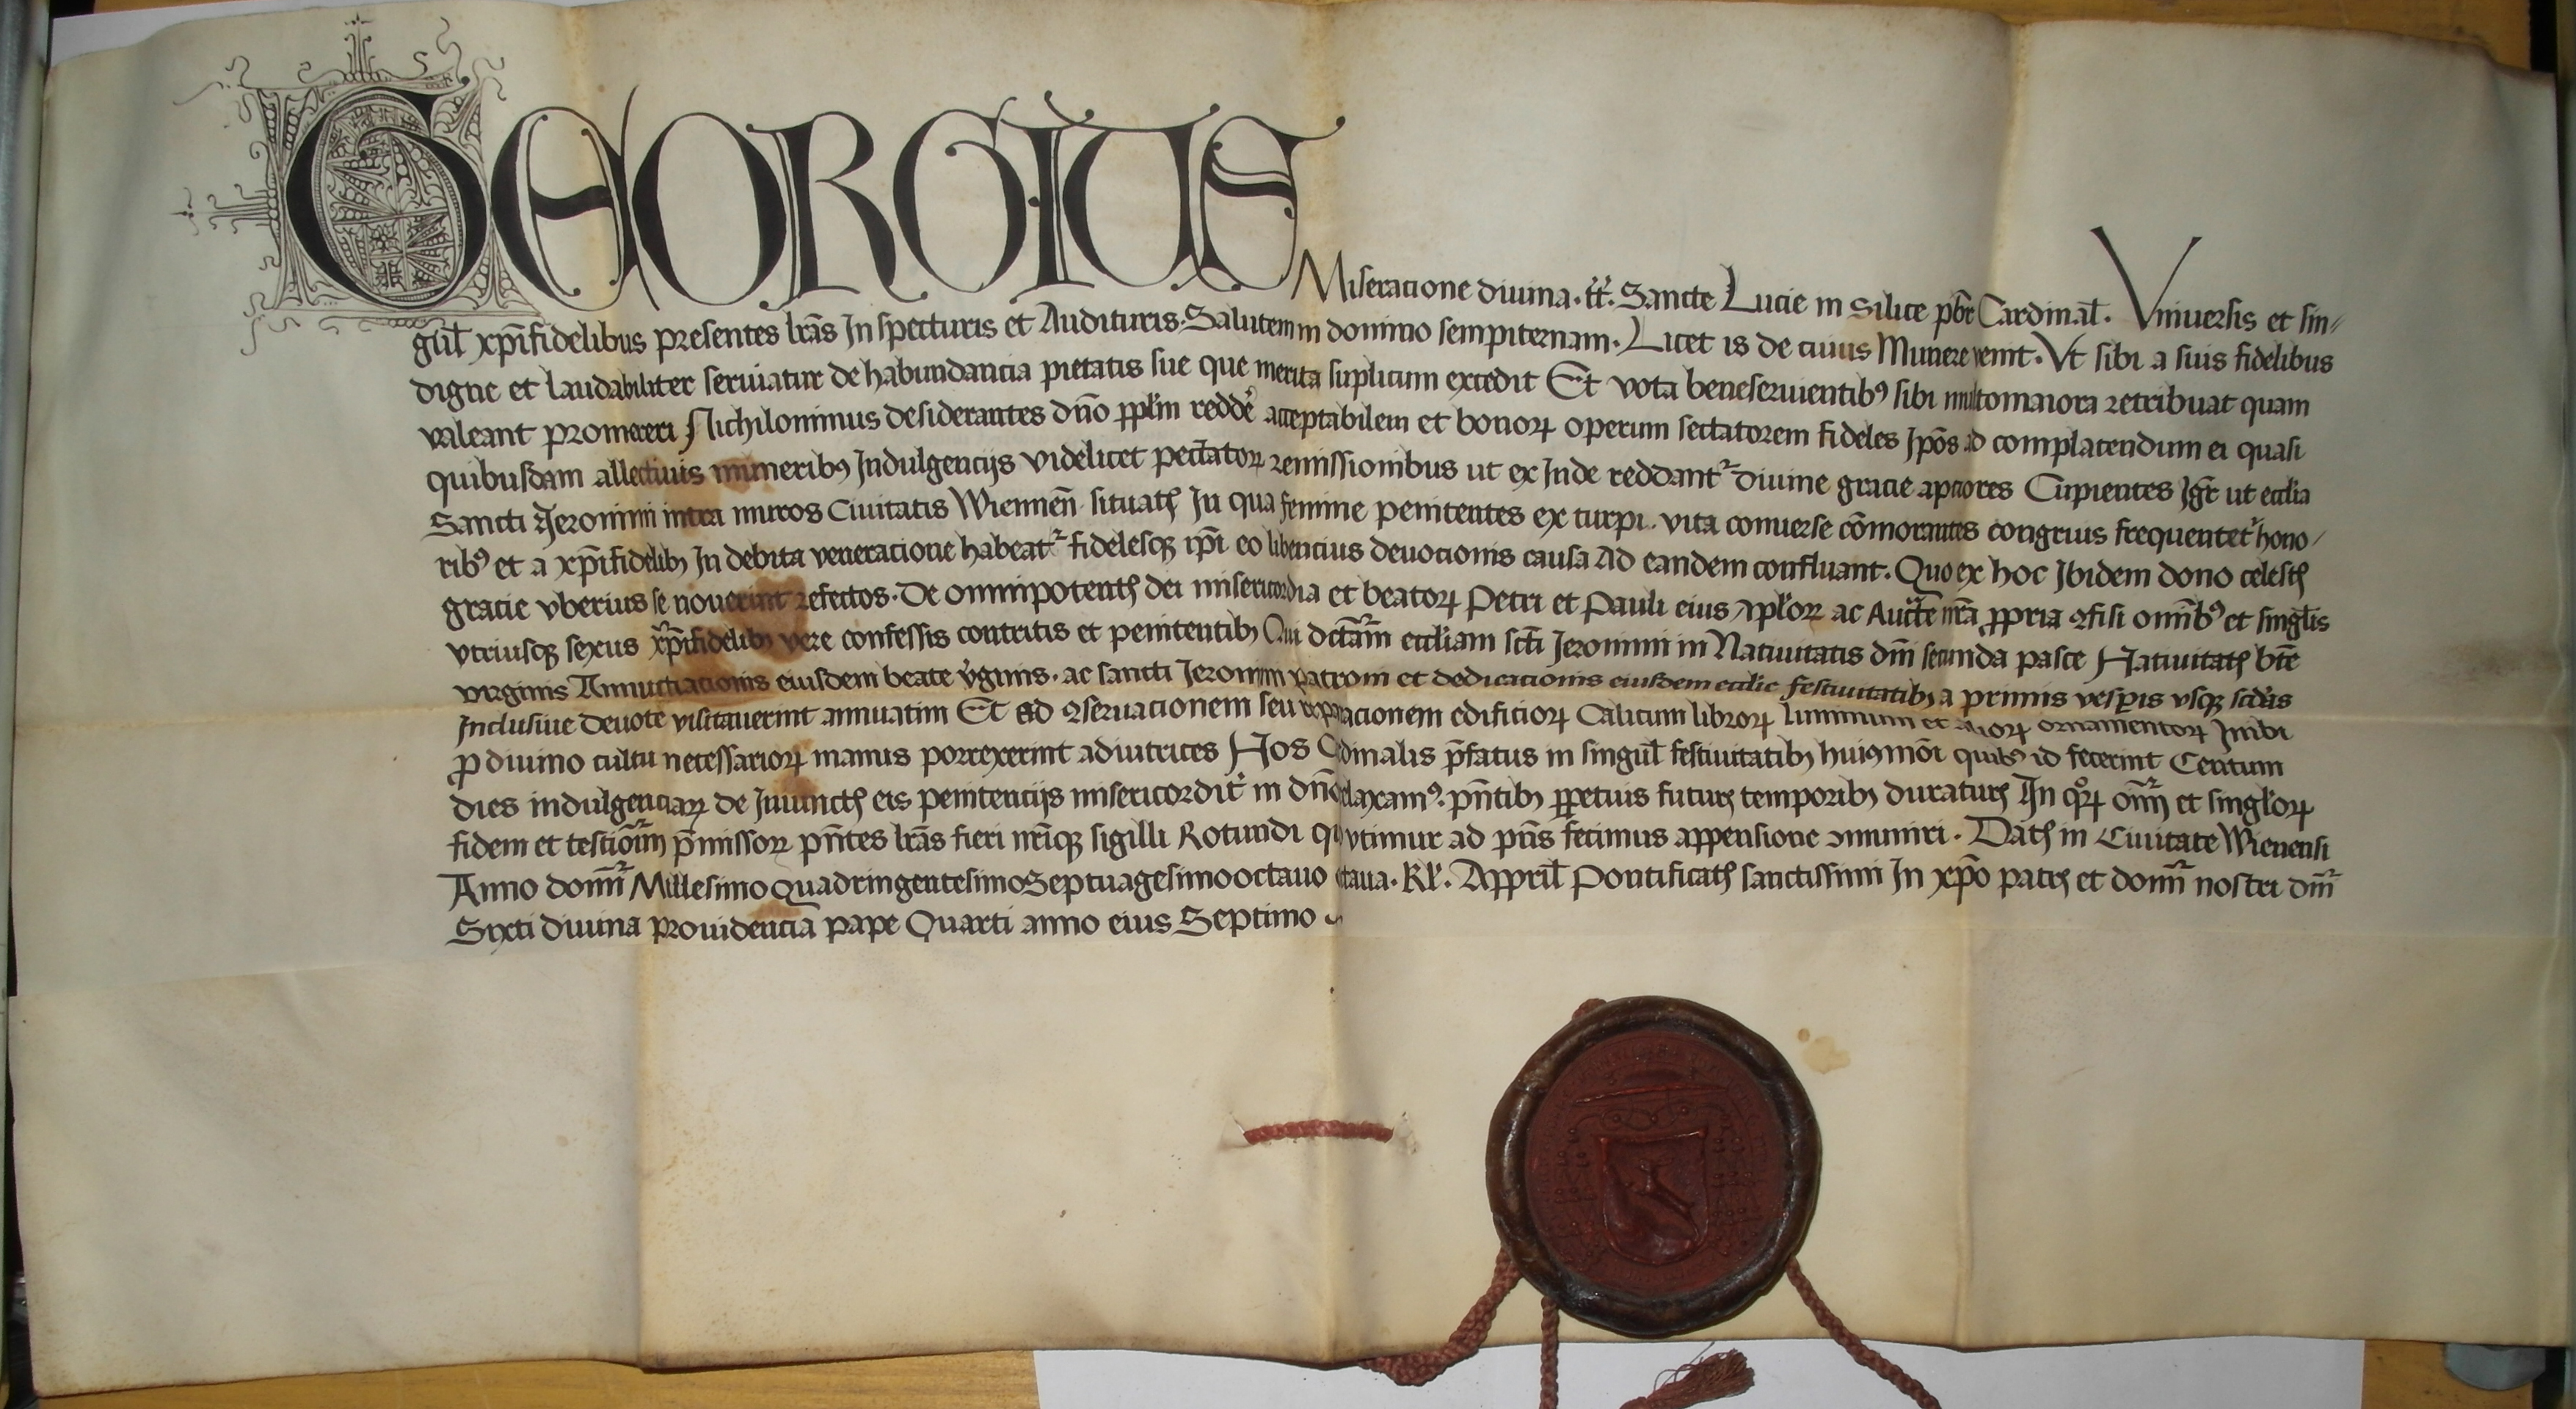 GEORGIUS Miseracione diuina. tt̄. Sancte Lucie in Silice pbr̄ Cardinal̄. Vniuersis et sin⸗
gul̄ xp̄ifidelibus presentes lrās Inspecturis et Audituris. Salutem in domino sempiternam. Licet is de cuius Munere venit. Vt sibi a suis fidelibus
digne et laudabiliter seruiatur de habundancia pietatis sue que merita suplicum excedit Et vota beneseruientibꝰ sibi multomaiora retribuat quam
valeant promereri Nichilominus desiderantes dn̄o pp̄lm redde᷒ acceptabilem et bonoꝝ operum sectatorem fideles Ip̄os ad complacendum ei quasi
quibusdam allectiuis muneribꝰ Indulgencijs videlicet pecc̄atoꝝ remissionibus ut ex Inde reddantᷣ diuine gracie apciores Cupientes Igr̄ ut eccl̄ia
Sancti Jeronimi intra muros Ciuitatis Wiennen̄ situatꝭ In qua femine penitentes ex turpi. vita conuerse cōmorantes congruis frequentetᷣ hono⸗
ribꝰ et a xp̄ifidelibꝫ In debita veneracione habeatᷣ fidelesqꝫ ip̄i eo libencius deuocionis causa Ad eandem confluant. Quo ex hoc Ibidem dono celestꝭ
gracie vberius se nouerint refectos. De omnipotentꝭ dei misericordia et beatoꝝ Petri et Pauli eius Apl̄oꝝ ac Auct̄te nr̄a ꝓpria ꝯfisi omībꝰ et singl̄is
vtriusqꝫ sexus xp̄ifidelibꝫ vere confessis contritis et penitentibꝫ Qui dc̄tam eccl̄iam sct̄i Jeronimi in Natiuitatis dn̄i secunda pasce Natiuitatꝭ bt̄e
virginis Annuctiacionis eiusdem beate v᷒ginis. ac sancti Jeronimi patroni et dedicacionis eiusdem eccl̄ie festiuitatibꝫ a primis vesꝑis vsqꝫ scd̄as
Inclusiue deuote visitauerint annuatim Et ad ꝯseruacionem seu reparacionem edificioꝝ Calicum libroꝝ luminum et alioꝝ ornamentoꝝ Inibi
ꝓ diuino cultu necessarioꝝ manus porrexerint adiutrices Nos Cardinalis p̄fatus in singul̄ festiuitatibꝫ huiꝰmōi quibꝰ id fecerint Centum
dies indulgenciaꝝ de Iniunctꝭ eis penitencijs misericordit᷒ in dn̄o relaxamꝰ. pn̄tibꝫ ꝑpetuis futurꝭ temporibꝫ duraturꝭ In qͦꝝ om̄ꝫ et singl̄oꝝ
fidem et testiōiꝫ p̄missoꝝ pn̄tes lrās fieri nr̄iqꝫ sigilli Rotundi quo vtimur ad pn̄s fecimus appensione ꝯmuniri. Datꝭ in Ciuitate Wienensi
Anno domī Millesimo Quadringentesimo Septuagesimooctauo octaua. Kl̄. Appril̄ Pontificatꝭ sanctissimi In xp̄o patrꝭ et domī nostri dn̄i
Sixti diuina prouidencia pape Quarti anno eius Septimo